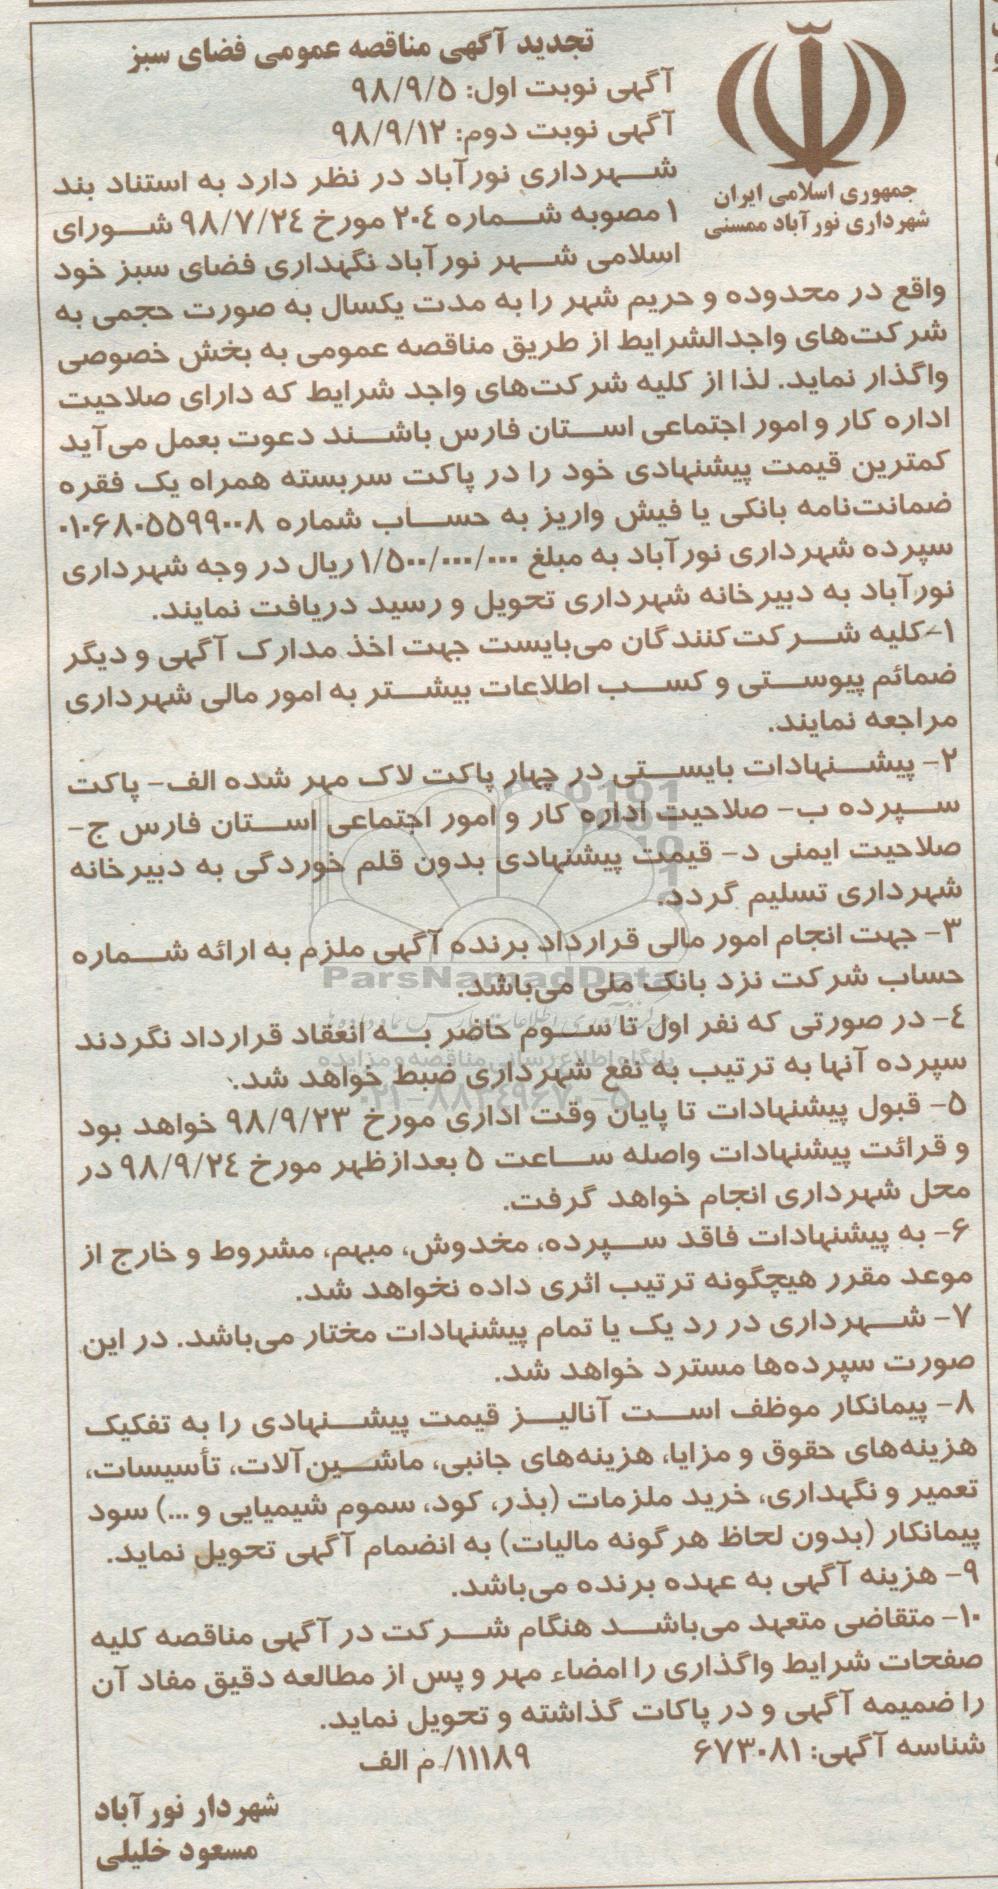 تجدید آگهی مناقصه عمومی فضای سبز
آگهی نوبت اول: ۹۸/۹/۵
آگهی نوبت دوم: ۹۸/۹/۱۲
جمهوری اسلامی ایران
شهرداری نورآباد ممسنی
شهرداری نورآباد در نظر دارد به استناد بند
۱ مصوبه شماره ۲۰۴ مورخ ۹۸/۷/۲۴ شورای
اسلامی شهر نورآباد نگهداری فضای سبز خود
واقع در محدوده و حریم شهر را به مدت یکسال به صورت حجمی به
شرکت‌های واجدالشرایط از طریق مناقصه عمومی به بخش خصوصی
واگذار نماید. لذا از کلیه شرکت‌های واجد شرایط که دارای صلاحیت
اداره کار و امور اجتماعی استان فارس باشند دعوت بعمل می‌آید
کمترین قیمت پیشنهادی خود را در پاکت سربسته همراه یک فقره
ضمانت‌نامه بانکی یا فیش واریز به حساب شماره ۰۱۰۶۸۰۵۵۹۹۰۰۸
سپرده شهرداری نورآباد به مبلغ ۱/۵۰۰/۰۰۰/۰۰۰ ریال در وجه شهرداری
نورآباد به دبیرخانه شهرداری تحویل و رسید دریافت نمایند.
۱-کلیه شرکت‌کنندگان می‌بایست جهت اخذ مدارک آگهی و دیگر
ضمائم پیوستی و کسب اطلاعات بیشتر به امور مالی شهرداری
مراجعه نمایند.
۲- پیشنهادات بایستی در چهار پاکت لاک مهر شده الف- پاکت
سپرده ب- صلاحیت اداره کار و امور اجتماعی استان فارس ج-
صلاحیت ایمنی د- قیمت پیشنهادی بدون قلم خوردگی به دبیرخانه
شهرداری تسلیم گردد.
۳- جهت انجام امور مالی قرارداد برنده آگهی ملزم به ارائه شماره
حساب شرکت نزد بانک ملی می‌باشد.
ParsNamadData
۴- در صورتی که نفر اول تا سوم حاضر به انعقاد قرارداد نگردند
سپرده آنها به ترتیب به نفع شهرداری ضبط خواهد شد.
پایگاه اطلاع رسانی مناقصه و مزایده
۵- قبول پیشنهادات تا پایان وقت اداری مورخ ۹۸/۹/۲۳ خواهد بود
و قرائت پیشنهادات واصله ساعت ۵ بعدازظهر مورخ ۹۸/۹/۲۴ در
محل شهرداری انجام خواهد گرفت.
۶- به پیشنهادات فاقد سپرده، مخدوش، مبهم، مشروط و خارج از
موعد مقرر هیچگونه ترتیب اثری داده نخواهد شد.
۷- شهرداری در رد یک یا تمام پیشنهادات مختار می‌باشد. در این
صورت سپرده‌ها مسترد خواهد شد.
۸- پیمانکار موظف است آنالیز قیمت پیشنهادی را به تفکیک
هزینه‌های حقوق و مزایا، هزینه‌های جانبی، ماشین‌آلات، تأسیسات،
تعمیر و نگهداری، خرید ملزمات (بذر، کود، سموم شیمیایی و ...) سود
پیمانکار (بدون لحاظ هرگونه مالیات) به انضمام آگهی تحویل نماید.
۹- هزینه آگهی به عهده برنده می‌باشد.
۱۰- متقاضی متعهد می‌باشد هنگام شرکت در آگهی مناقصه کلیه
صفحات شرایط واگذاری را امضاء مهر و پس از مطالعه دقیق مفاد آن
را ضمیمه آگهی و در پاکات گذاشته و تحویل نماید.
شناسه آگهی: ۶۷۳۰۸۱ ۱۱۱۸۹/م الف
شهردار نورآباد
مسعود خلیلی